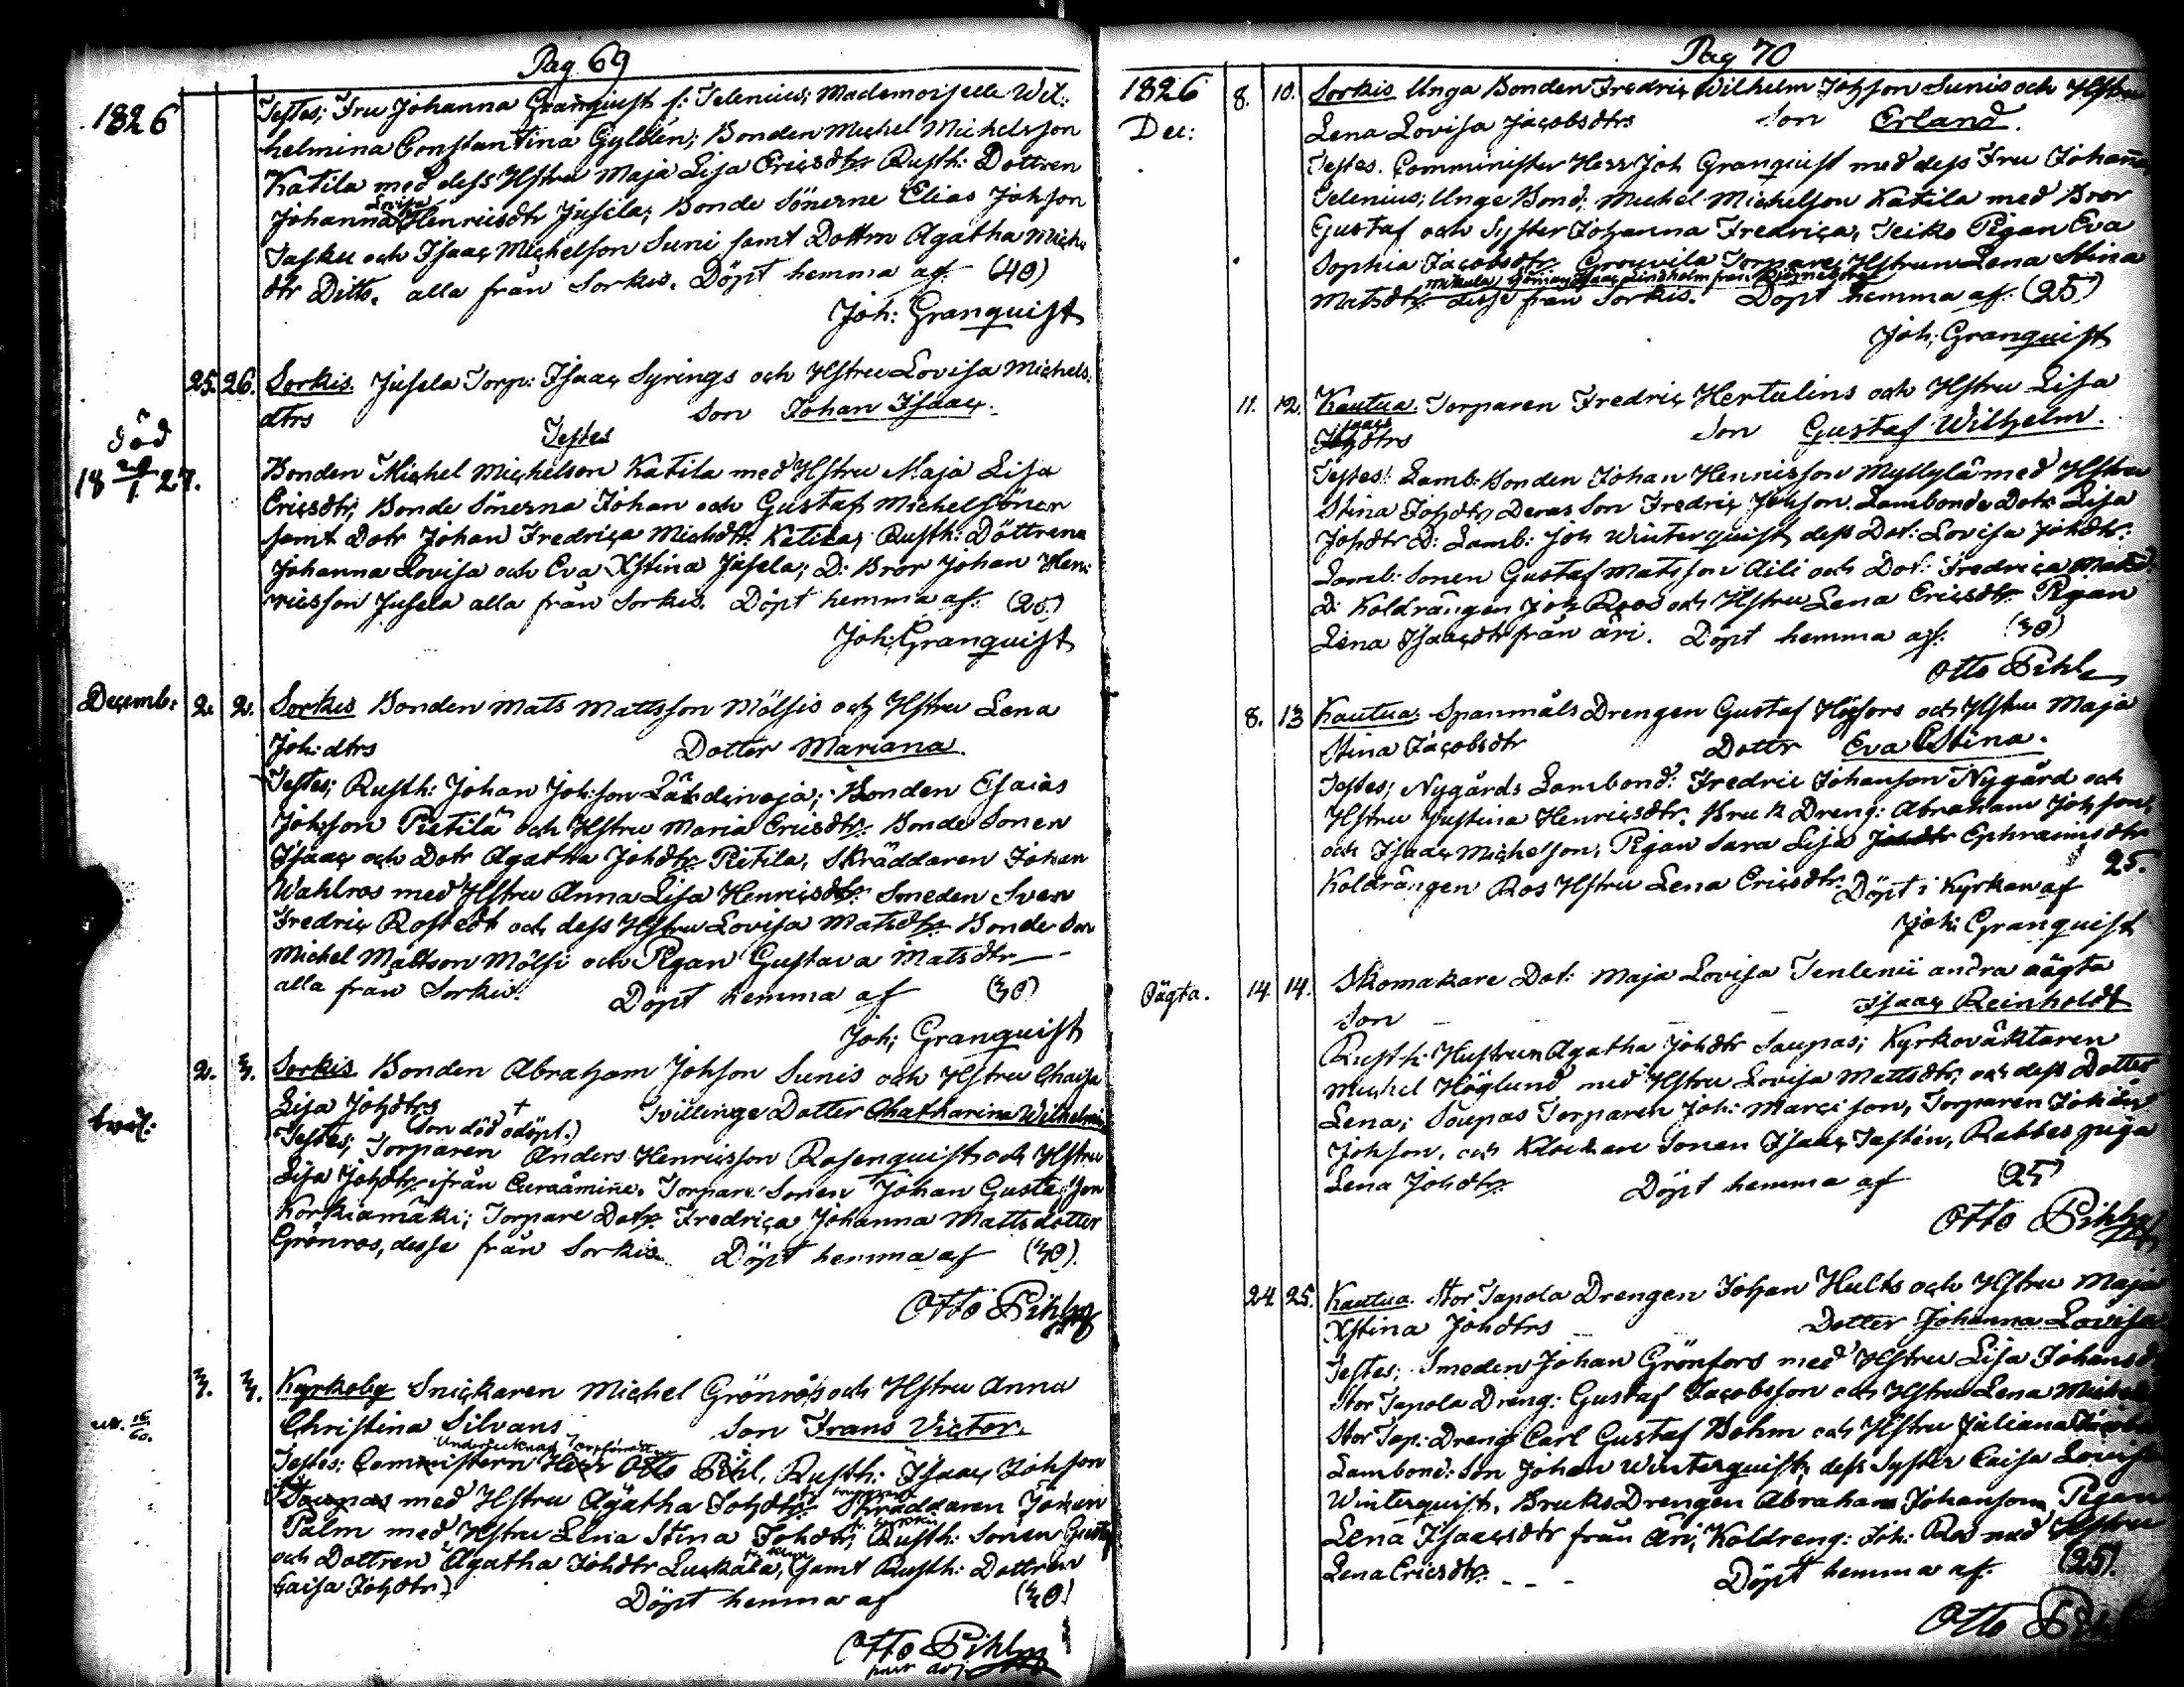 Pag 69
1826
Testes; Fru Johanna Granquist f: Telenius; Mademoiselle Wil:
helmina Constantina Gyldén; Bonden Michel Michelsson
Katila med dess Hstru Maja Lisa Ericsdtr. Rusth: Dottren
Lovisa
Johanna Henricsdtr Jusela; Bonde Sönerne Elias Johsson
Tasku och Isaac Michelsson Suni samt Dottrn Agatha Michs
dtr Ditto. alla från Sorkis. Döpt hemma af. (40)
Joh: Granquist
25. 26. Sorkis. Jusela Torp: Isaac Syrings och Hstru Lovisa Michels:
dtrs Son Johan Isaac.
Död
18 29/1 27.
Testes
Bonden Michel Michelson Katila med Hstru Maja Lisa
Ericsdtr; Bonde Sönerna Johan och Gustaf Michelsöner
samt Dotr Johan Fredrica Michdtr. Katila; Rusth: Döttrena
Johanna Lovisa och Eva Xstina Jusela; D: Bror Johan Hen:
ricsson Jusela alla från Sorkis. Döpt hemma af. (20)
Joh: Granquist
Decemb: 2. 2. Sorkis Bonden Mats Mattsson Mölsis och Hstru Lena
Joh:dtrs Dotter Mariana.
Testes; Rusth: Johan Joh:son Bonden Esaias
Johsson Pietilä och Hstru Maria Ericsdtr. Bonde Sonen
Isaac och Dotr Agatha Johdtr. Pietila, Skräddaren Johan
Wahlros med Hstru Anna Lisa Henricsdtr. Smeden Sven
Fredric Rostedt och dess Hstru Lovisa Matsdtr. Bonde Son
Michel Matsson Mölsi och Pigan Gustava Matsdtr
alla från Sorkis. Döpt hemma af (30)
Joh; Granquist
2. 3. Sorkis Bonden Abraham Johsson Sunis och Hstru Chaisa
Lisa Johdtrs Tvillinge Dotter Chatharina Wilhelmina
(Son död odöpt.)
Testes; Torparen Anders Henricsson Rosenquist och Hstru
Lisa Johdtr. ifrån Euraåminne. Torpare Sonen Johan Gustafsson
Korkiamäki; Torpare Dotr. Fredrica Johanna Mattsdotter
Grönros, desse från Sorkis. Döpt hemma af (30).
Otto Pihl
3. 3. Kyrkoby Snickaren Michel Grönros och Hstru Anna
Christina Silvans Son Frans Victor.
Testes: Comministern Herr Otto Pihl, Rusth: Isaac Johsson
Saupas med Hstru Agatha Johdtr. Skräddaren Johan
Palm med Hstru Lena Stina Johdtr; Rusth: Sonen Gustaf
och Dottren Agatha Johdtr Luskala, (samt Rusth: Dottren
Caisa Johdtr.) Döpt hemma af (30)
Otto Pihl
Pag 70
1826 8. 10. Sorkis Unga Bonden Fredric Wilhelm Johsson Sunis och Hstru
Dec: Lena Lovisa Jacobsdtrs Son Erland.
Testes. Comminister Herr Joh Granquist med dess Fru Johanna
Telenius; Unge Bond; Michel Michelsson Katila med Bror
Gustaf och Syster Johanna Fredrica, Teiko Pigan Eva
Sophia Jacobsdtr. Crouvila Torpare Hstrun Lena Stina
Matsdtr. desse från Sorkis. Döpt hemma af: (25)
Joh; Granquist
11. 12. Kautua. Torparen Fredric Hertulins och Hstru Lisa
Isaacs
dtrs Son Gustaf Wilhelm.
Testes: Lamb: Bonden Johan Henricsson Myllylä med Hstru
Stina Johdtr, Deras Son Fredric Johsson. Lambonde Dotr Lisa
Johdtr D: Lamb: Joh Winterquist dess Dot: Lovisa Johdtr:
Lamb: Sonen Gustaf Matsson Äili och Dot: Fredrica Matsd.
D: Koldrängen Joh Roos och Hstru Lena Ericsdtr. Pigan
Lena Isaacsdtr från Äri. Döpt hemma af: (30)
Otto Pihl
8. 13 Kautua. Spanmåls Drengen Gustaf Högfors och Hstru Maja
Stina Jacobsdtr Dottr Eva Stina.
Testes; Nygårds Lambond: Fredric Johanson Nygård och
Hstru Justina Henricsdtr. Bruk Dreng: Abraham Johsson,
och Isaac Michelson, Pigan Sara Lisa Ephraimsdtr
Koldrängen Ros Hstru Lena Ericsdtr. 25.
Döpt i Kyrkan af
Joh: Granquist
Oägta. 14. 14. Skomakare Dot: Maja Lovisa Tenlenii andra oägta
Son Isaac Reinholdt
Rusth: Hustrun Agatha Johdtr Saupas; Kyrkoväktaren
Michel Höglund med Hstru Lovisa Mattsdtr, och dess Dotter
Lena; Soupas Torparen Joh: Marcisson, Torparen Johan
Johsson, och Klockare Sonen Isaac Tastén, Rabbes piga
Lena Johdtr. Döpt hemma af (25)
Otto Pihl
24. 25. Kautua. Stor Tapola Drengen Johan Hults och Hstru Maja
Xstina Johdtrs Dotter Johanna Lovisa
Testes; Smeden Johan Grönfors med Hstru Lisa Johansd
Stor Tapola Dreng: Gustaf Jacobsson och Hstru Lena
Stor Tap: Dreng Carl Gustaf Bohm och Hstru Juliana
Lambond: Son Johan Winterquist, dess Syster Caisa Lovisa
Winterquist. Bruks Drengen Abraham Johansson Pigan
Lena Isaacsdtr från Äri; Koldreng: Joh: Ros med Hstru
Lena Ericsdtr. Döpt hemma af: (25).
Otto